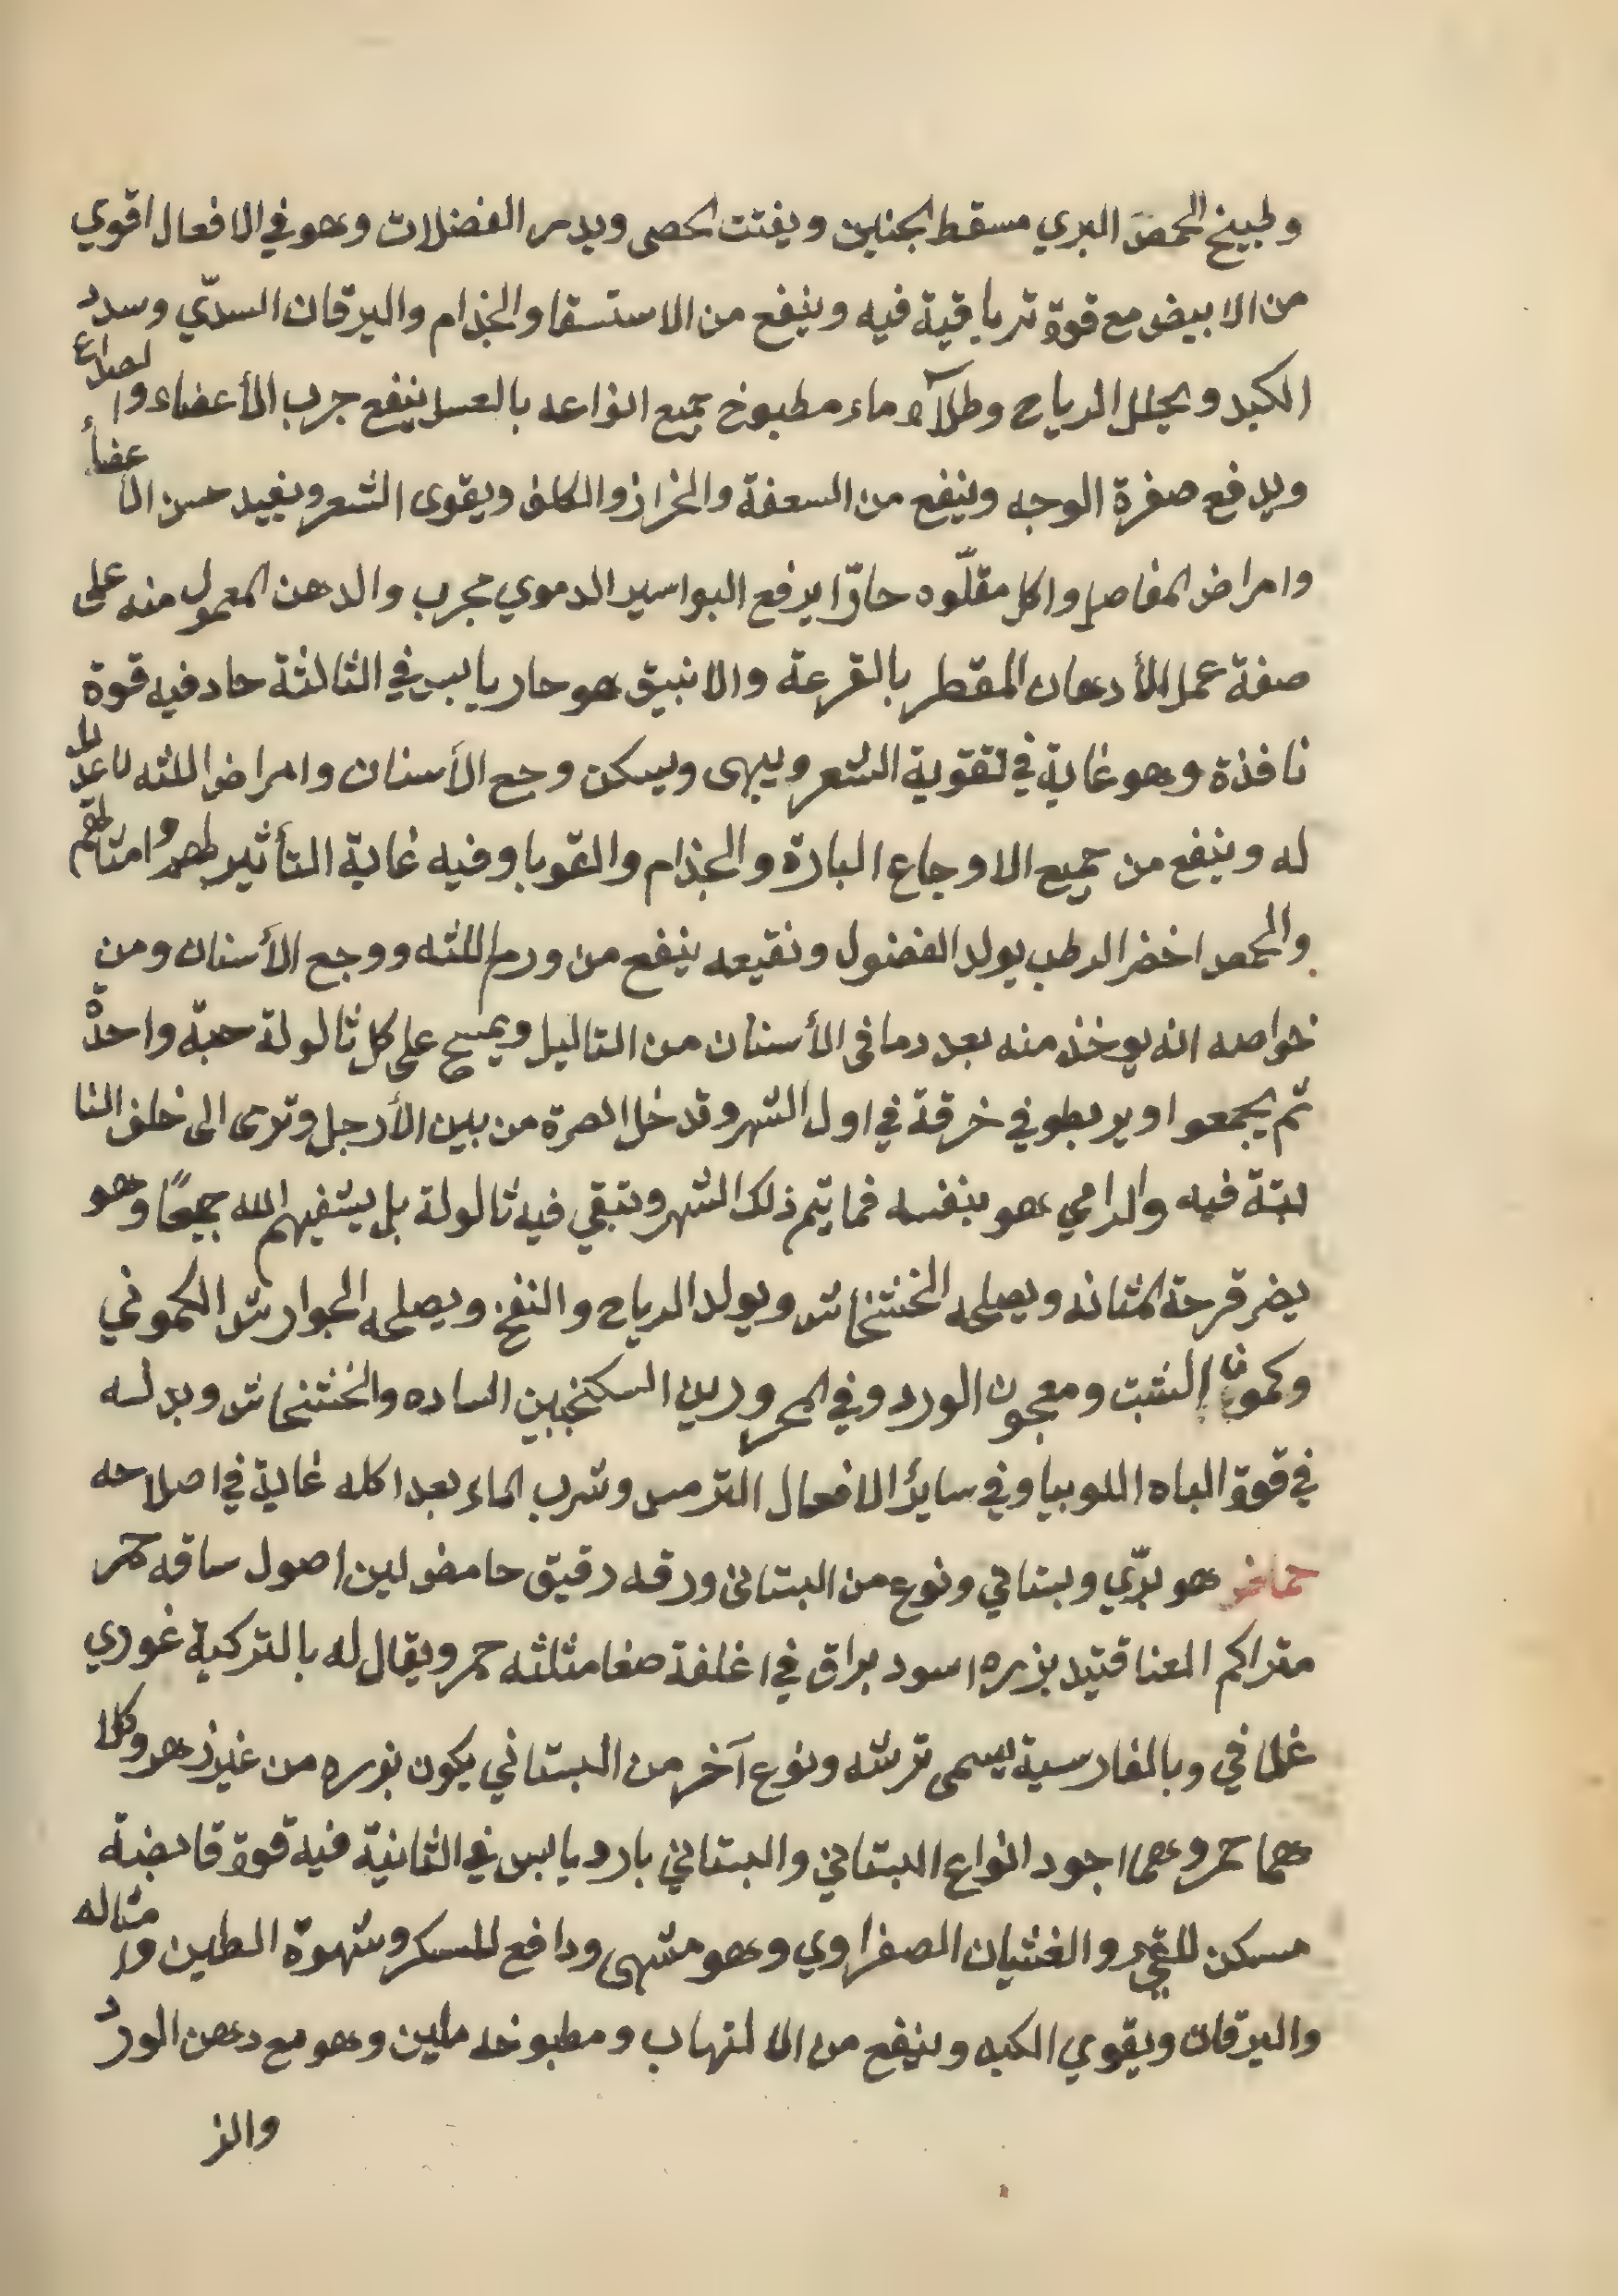 وطبيخ الحمص البري مسقط الجنين ويفتت الحصى ويدر الفضلات وهو في الافعال اقوي
من الابيض مع قوة ترياقية فيه وينفع من الاستسقا والجذام واليرقان السدّي وسدد
الكبد ويحلل الرياح وطلآء ماء مطبوخ جميع انواعه بالعسل ينفع جرب الأعضاء والصداع
ويدفع صفرة الوجه وينفع من السعفة والخزاز والكلف ويقوى الشعر ويفيد حسن الأعضاء
وامراض المفاصل واكل مقلّوه حارّا يرفع البواسير الدموي مجرب والدهن المعمول منه على
صفة عمل الأدهان المقطر بالقرعة والانبيق هو حار يابس في الثالثة حاد فيه قوة
نافذة وهو غاية في تقوية الشعر ويبهى ويسكن وجع الأسنان وامراض اللثه لا عديل
له وينفع من جميع الاوجاع الباردة والجذام والقوبا وفيه غاية التأثير
والحمص اخضر الرطب يولد الفضول ونقيعه ينفع من ورم اللثه ووجع الأسنان ومن
خواصه انه يوخذ منه بعدد ما في الأسنان من التاليل ويمسح على كل ثالولة حبة واحدة
ثم يجمعوا ويربطو في خرقة في اول الشهر وتدخل الصرة من بين الأرجل وترمى الى خلف النا
بتة فيه والرامي هو بنفسه فما يتم ذلك الشهر وتبقي فيه ثالولة بل يشفيهم الله جميعًا وهو
يضر قرحة المثانه ويصلحه الخشخاش ويولد الرياح والنفخ ويصلحه الجوارش الكموني
وكمون الشبت ومعجون الورد وفي المحرورين السكنجبين الساده والخشخاش وبدله
في قوة الباه اللوبيا وفي سائر الافعال الترمس وشرب الماء بعد اكله غاية في اصلاحه
حماض هو برّي وبستاني ونوع من البستاني ورقه رقيق حامض لين اصول ساقه حمر
متراكم العناقيد بزره اسود براق في اغلفة صغا مثلثه حمر ويقال له بالتركية غوري
غلافي وبالفارسية يسمى ترشه ونوع آخر من البستاني يكون بزره من غير زهر وكلا
هما حمر وهما اجود انواع البستاني والبستاني بارد يابس في الثانية فيه قوة قابضة
مسكن للقيء والغثيان الصفراوي وهو مشهى ودافع للسكر وشهوة الطين وامثاله
واليرقان ويقوي الكبد وينفع من الالتهاب ومطبوخه ملين وهو مع دهن الورد
والز